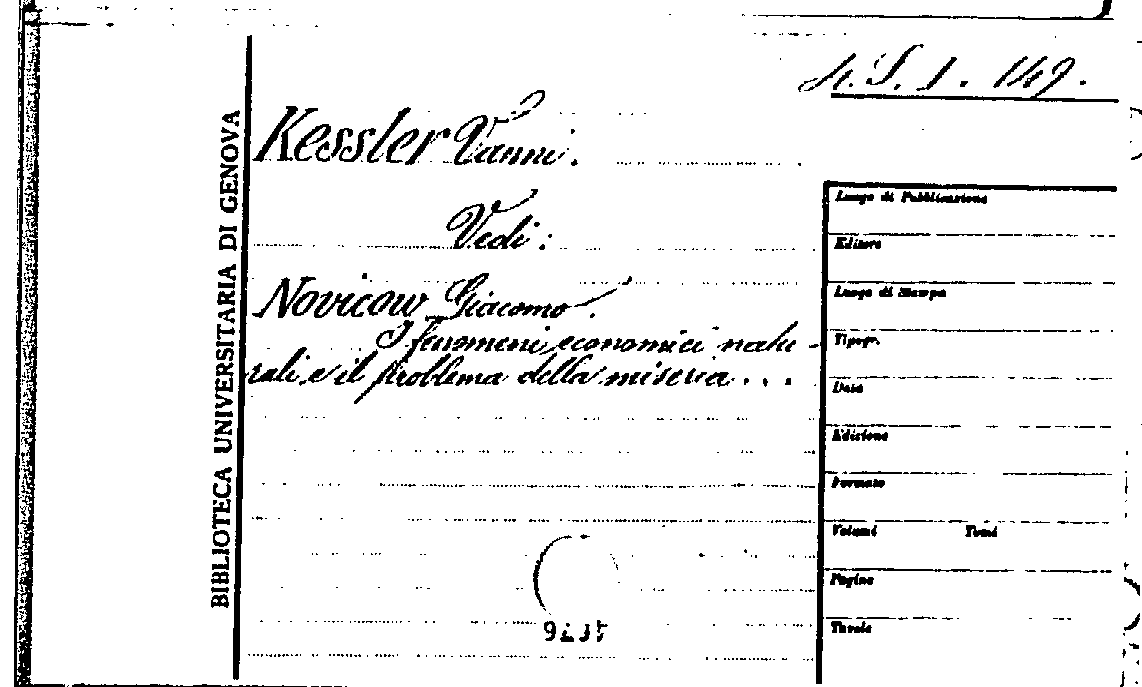 4. S. 1. 149.
BIBLIOTECA UNIVERSITARIA DI GENOVA
Kessler Vanni.
Vedi:
Novicow Giacomo.
I fenomeni economici natu-
rali e il problema della miseria...
Luogo di Pubblicazione
Editore
Luogo di Stampa
Tipogr.
Data
Edizione
Formato
Volumi Tomi
Pagine
Tavole